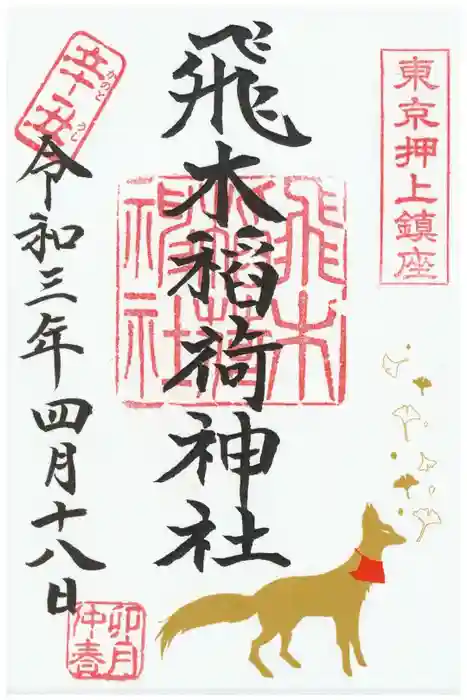 東京押上鎮座
飛木稲荷神社
飛木稲荷神社
辛丑
かのと
うし
令和三年四月十八日
卯月
仲春